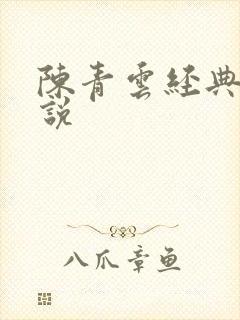 陳青雲經典
說
八爪章鱼